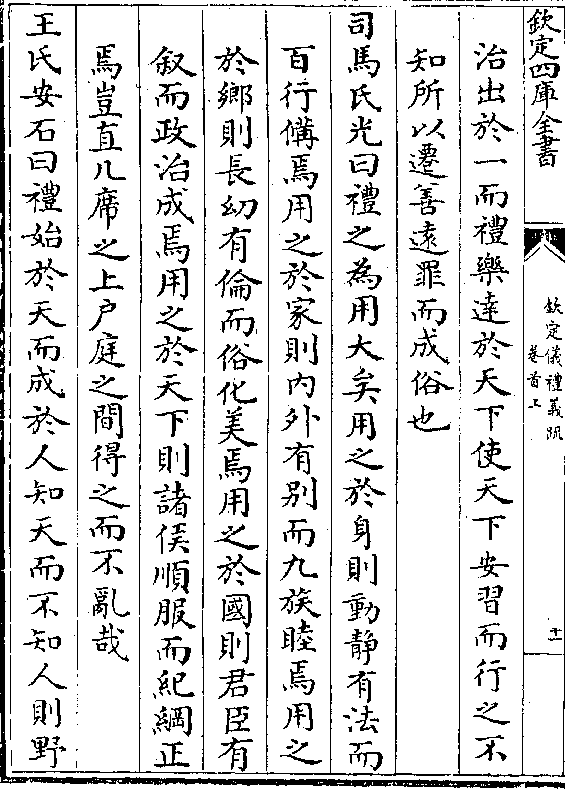 欽定四庫全書
欽定儀禮義疏
卷首上
十一
治出於一而禮樂達於天下使天下安習而行之不
知所以遷善遠罪而成俗也
司馬氏光曰禮之為用大矣用之於身則動靜有法而
百行備焉用之於家則內外有別而九族睦焉用之
於鄉則長幼有倫而俗化美焉用之於國則君臣有
叙而政治成焉用之於天下則諸侯順服而紀綱正
焉豈直几席之上戶庭之間得之而不亂哉
王氏安石曰禮始於天而成於人知天而不知人則野